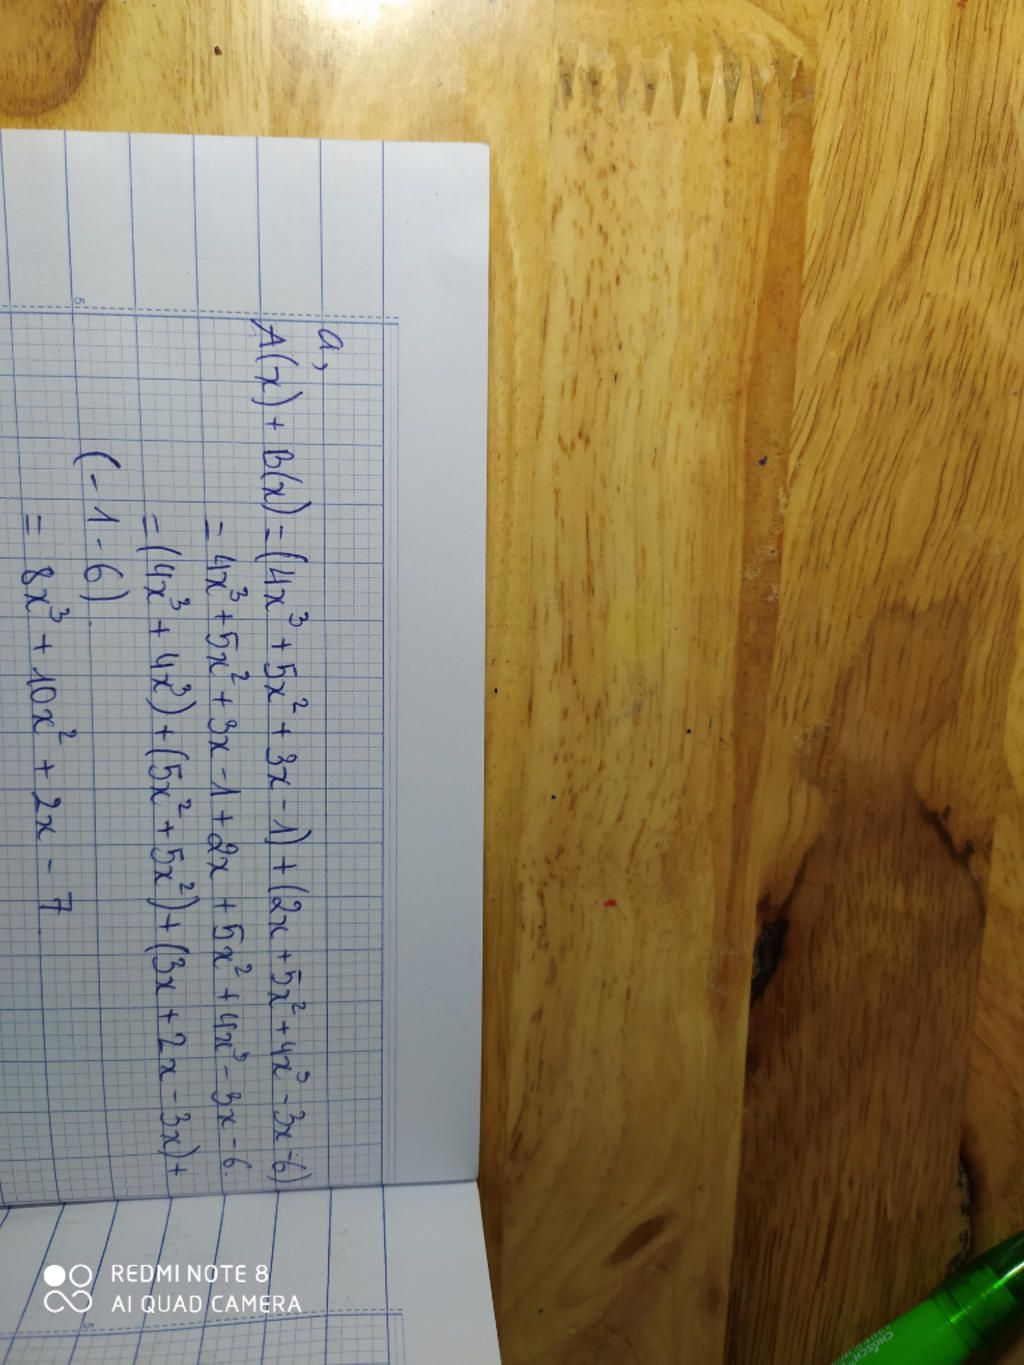 a,
A(x) + B(x) = (4x³ + 5x² + 3x - 1) + (2x + 5x² + 4x³ - 3x - 6)
= 4x³ + 5x² + 3x - 1 + 2x + 5x² + 4x³ - 3x - 6.
= (4x³ + 4x³) + (5x² + 5x²) + (3x + 2x - 3x) +
(- 1 - 6)
= 8x³ + 10x² + 2x - 7
5
5
REDMI NOTE 8
AI QUAD CAMERA